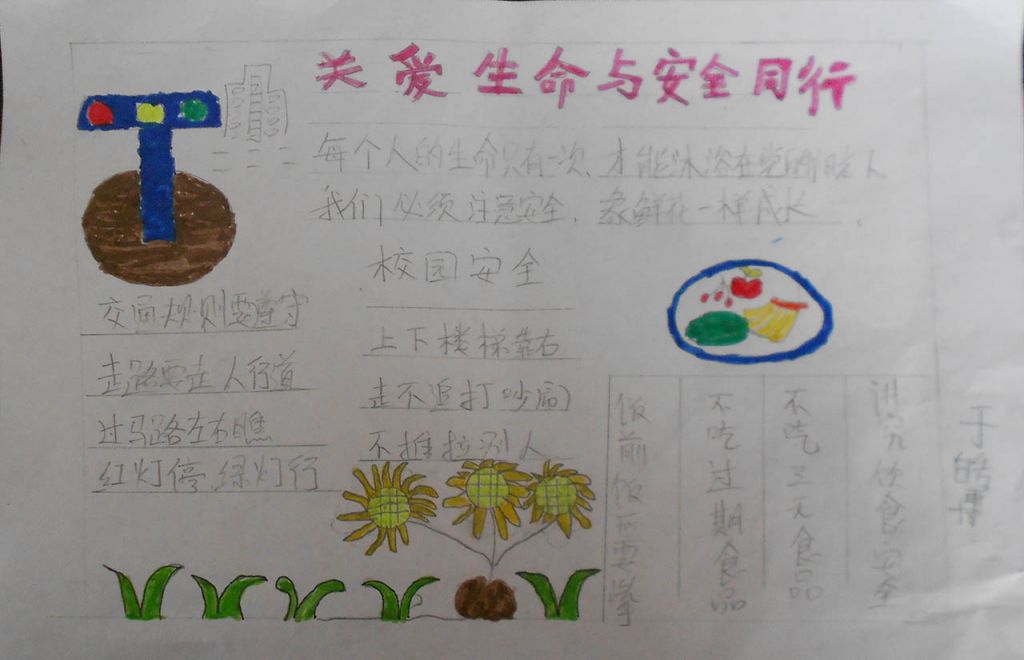 关爱生命与安全同行
每个人的生命只有一次,才能沐浴在党
我们必须注意安全,象鲜花一样成长。
交通规则要遵守
走路要走人行道
过马路左右瞧
红灯停,绿灯行
校园安全
上下楼梯靠右
走不追打吵闹
不推拉别人
讲究饮食安全
不吃三无食品
不吃过期食品
饭前饭后要
于